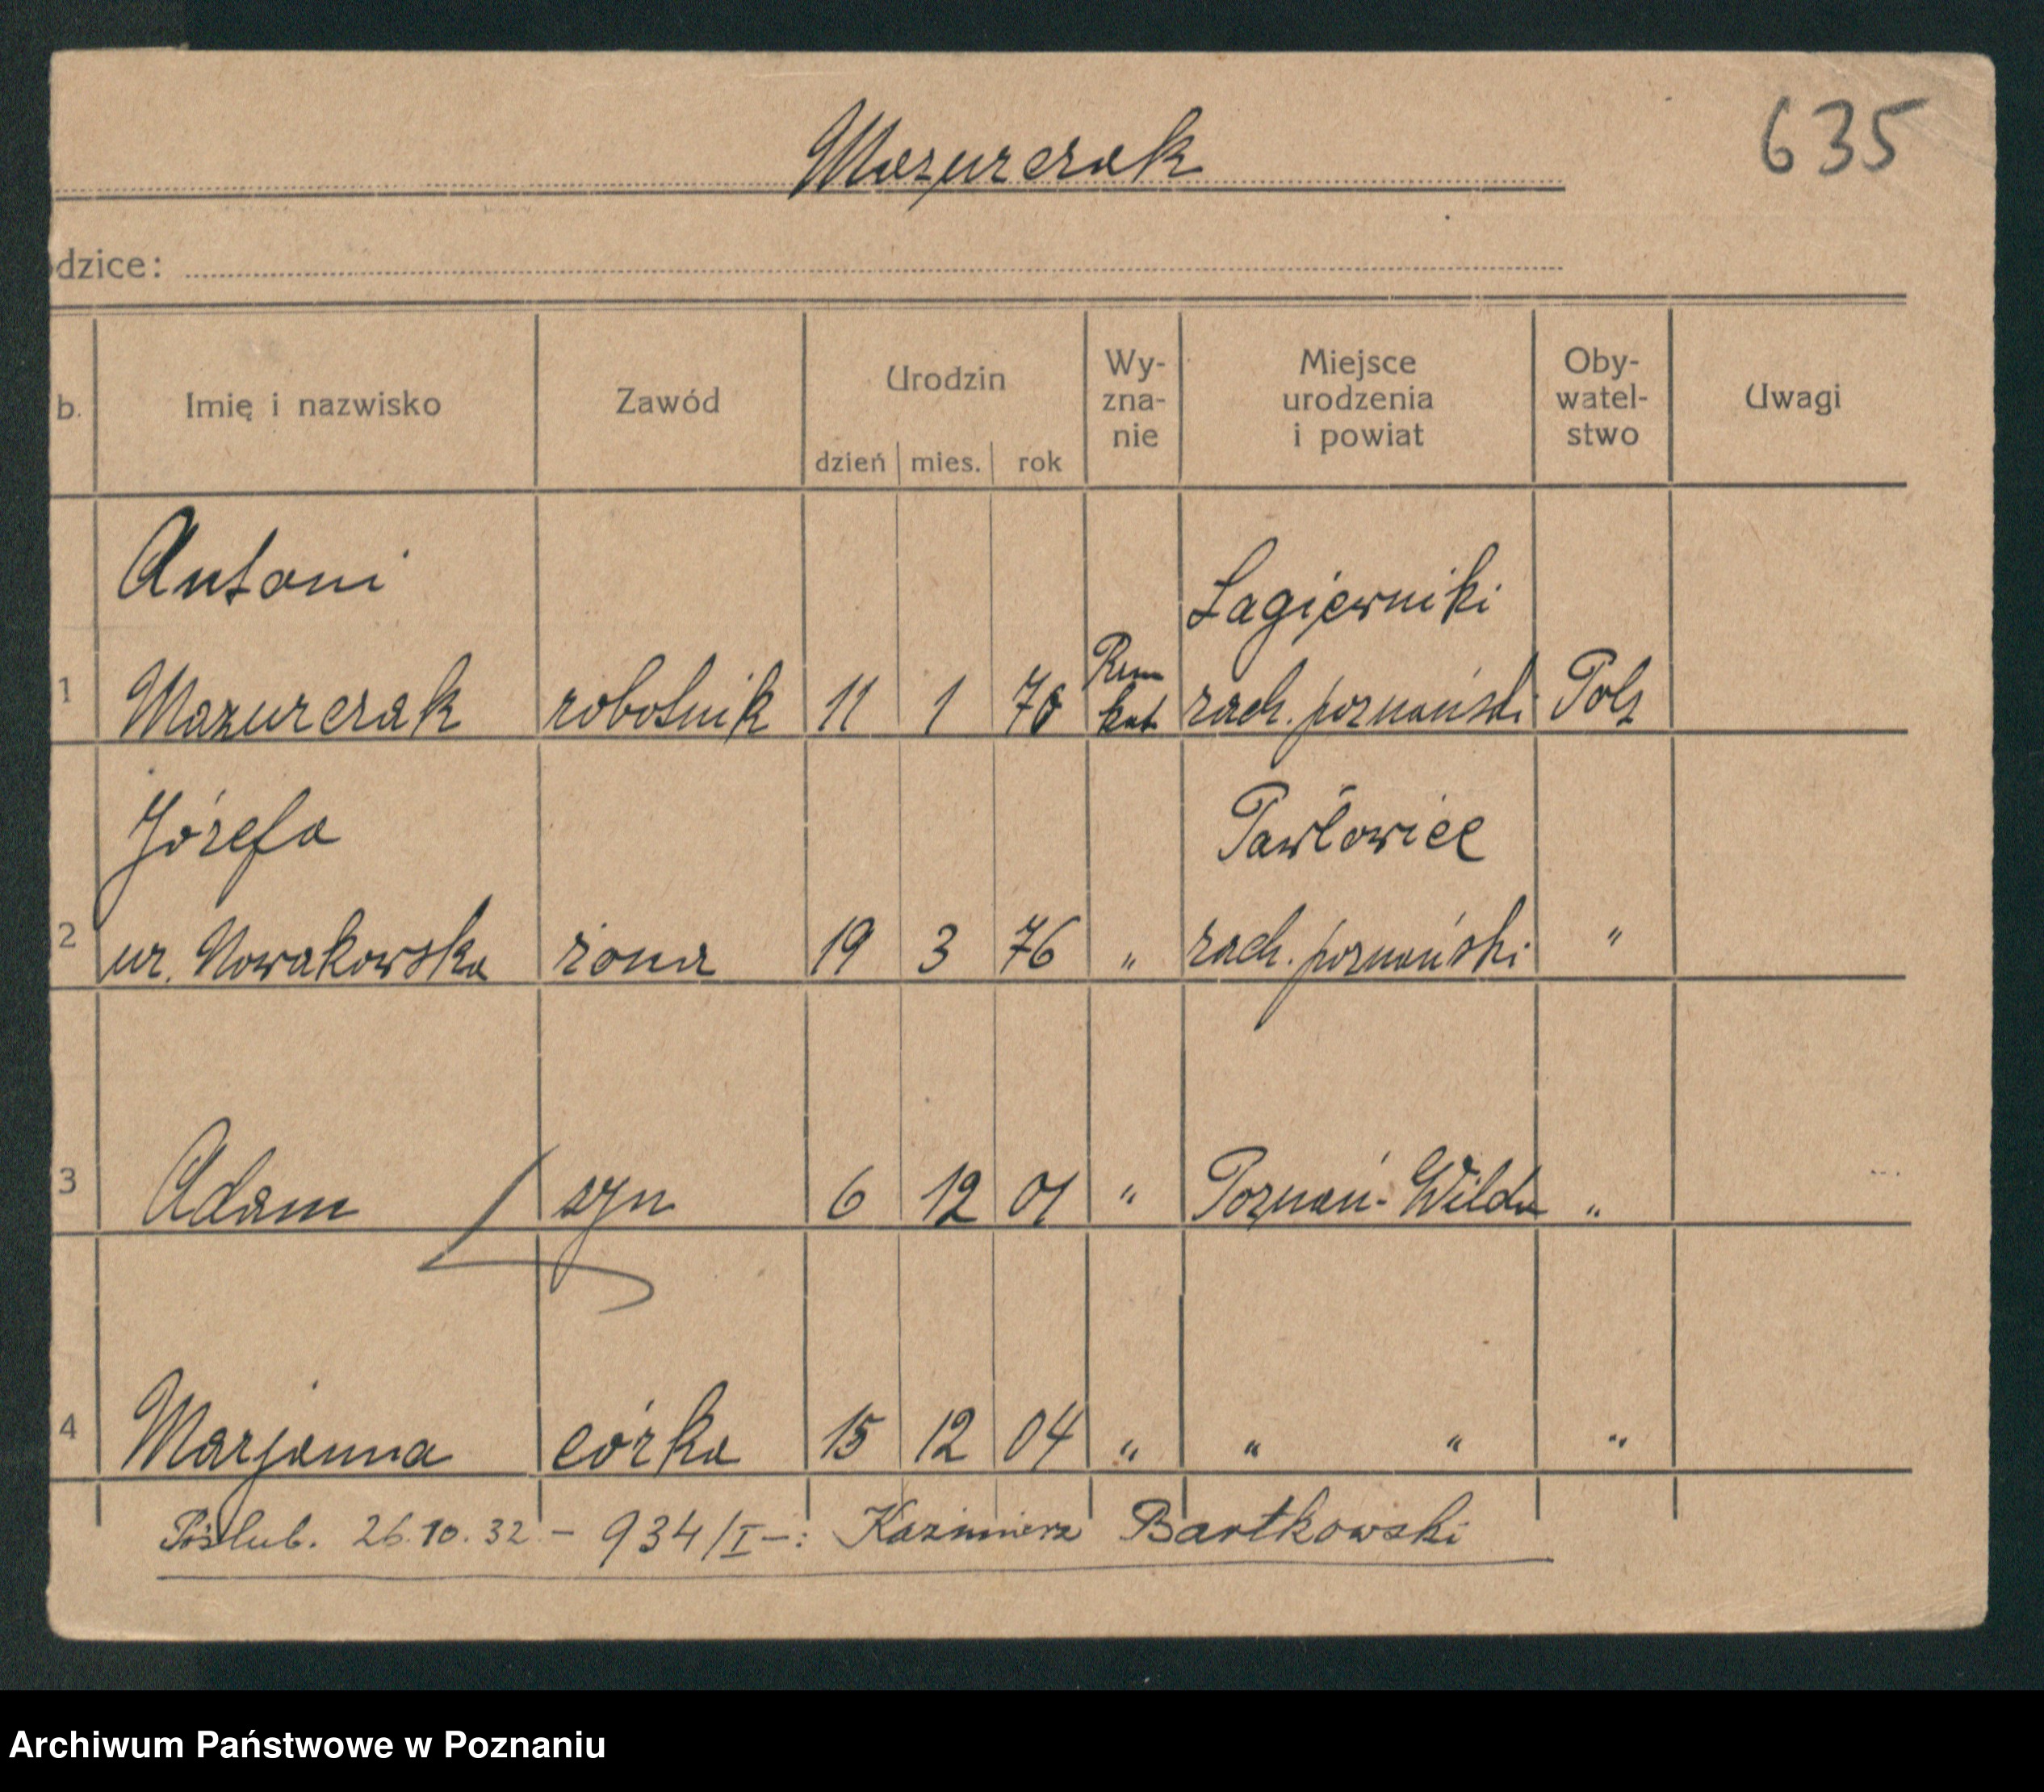 Mazurczak
635
dzice:
b.
Imię i nazwisko
Zawód
Urodzin
dzień mies. rok
Wy-
zna-
nie
Miejsce
urodzenia
i powiat
Oby-
watel-
stwo
Uwagi
Antoni Łagiewniki
1 Mazurczak robotnik 11 1 70 Rzm kat zach. poznański Pols
Józefa Pawłowice
2 ur. Nowakowska żona 19 3 76 " zach. poznański "
3 Adam syn 6 12 01 " Poznań-Wilda "
4 Marjanna córka 15 12 04 " " " "
Poślub. 26.10.32 - 934/I-: Kazimierz Bartkowski
Archiwum Państwowe w Poznaniu